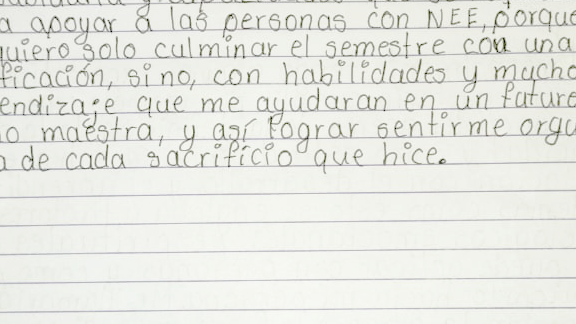 a apoyar a las personas con NEE, porque
quiero solo culminar el semestre con una
ficación, sino, con habilidades y mucho
endizaje que me ayudaran en un futuro
o maestra, y así lograr sentirme orgu
a de cada sacrificio que hice.